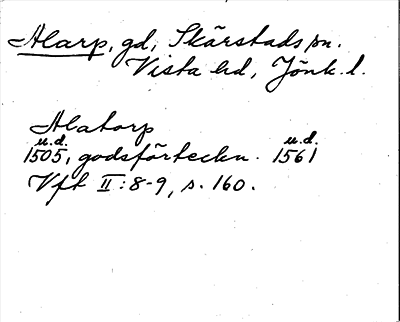 Alarp, gd, Skärstads sn.
Vista hd, Jönk. l.
Alatorp
u.d. u.d.
1505, godsförteckn. 1561
Vft II:8-9, s. 160.